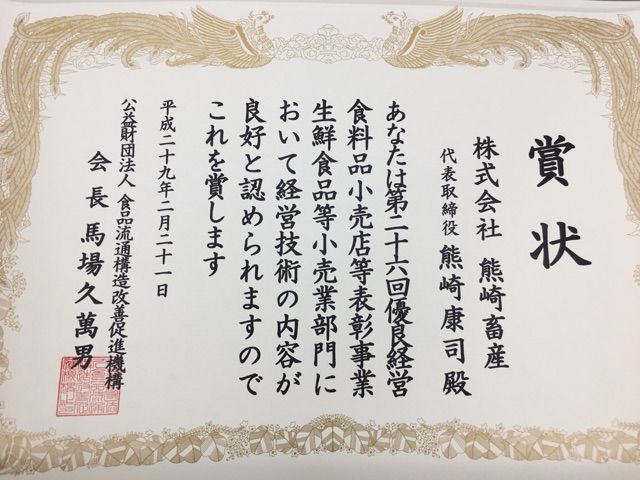 賞状
株式会社 熊崎畜産
代表取締役 熊崎康司殿
あなたは第二十六回優良経営
食料品小売店等表彰事業
生鮮食品等小売業部門に
おいて経営技術の内容が
良好と認められますので
これを賞します
平成二十九年二月二十一日
公益財団法人 食品流通構造改善促進機構
会長 馬場久萬男